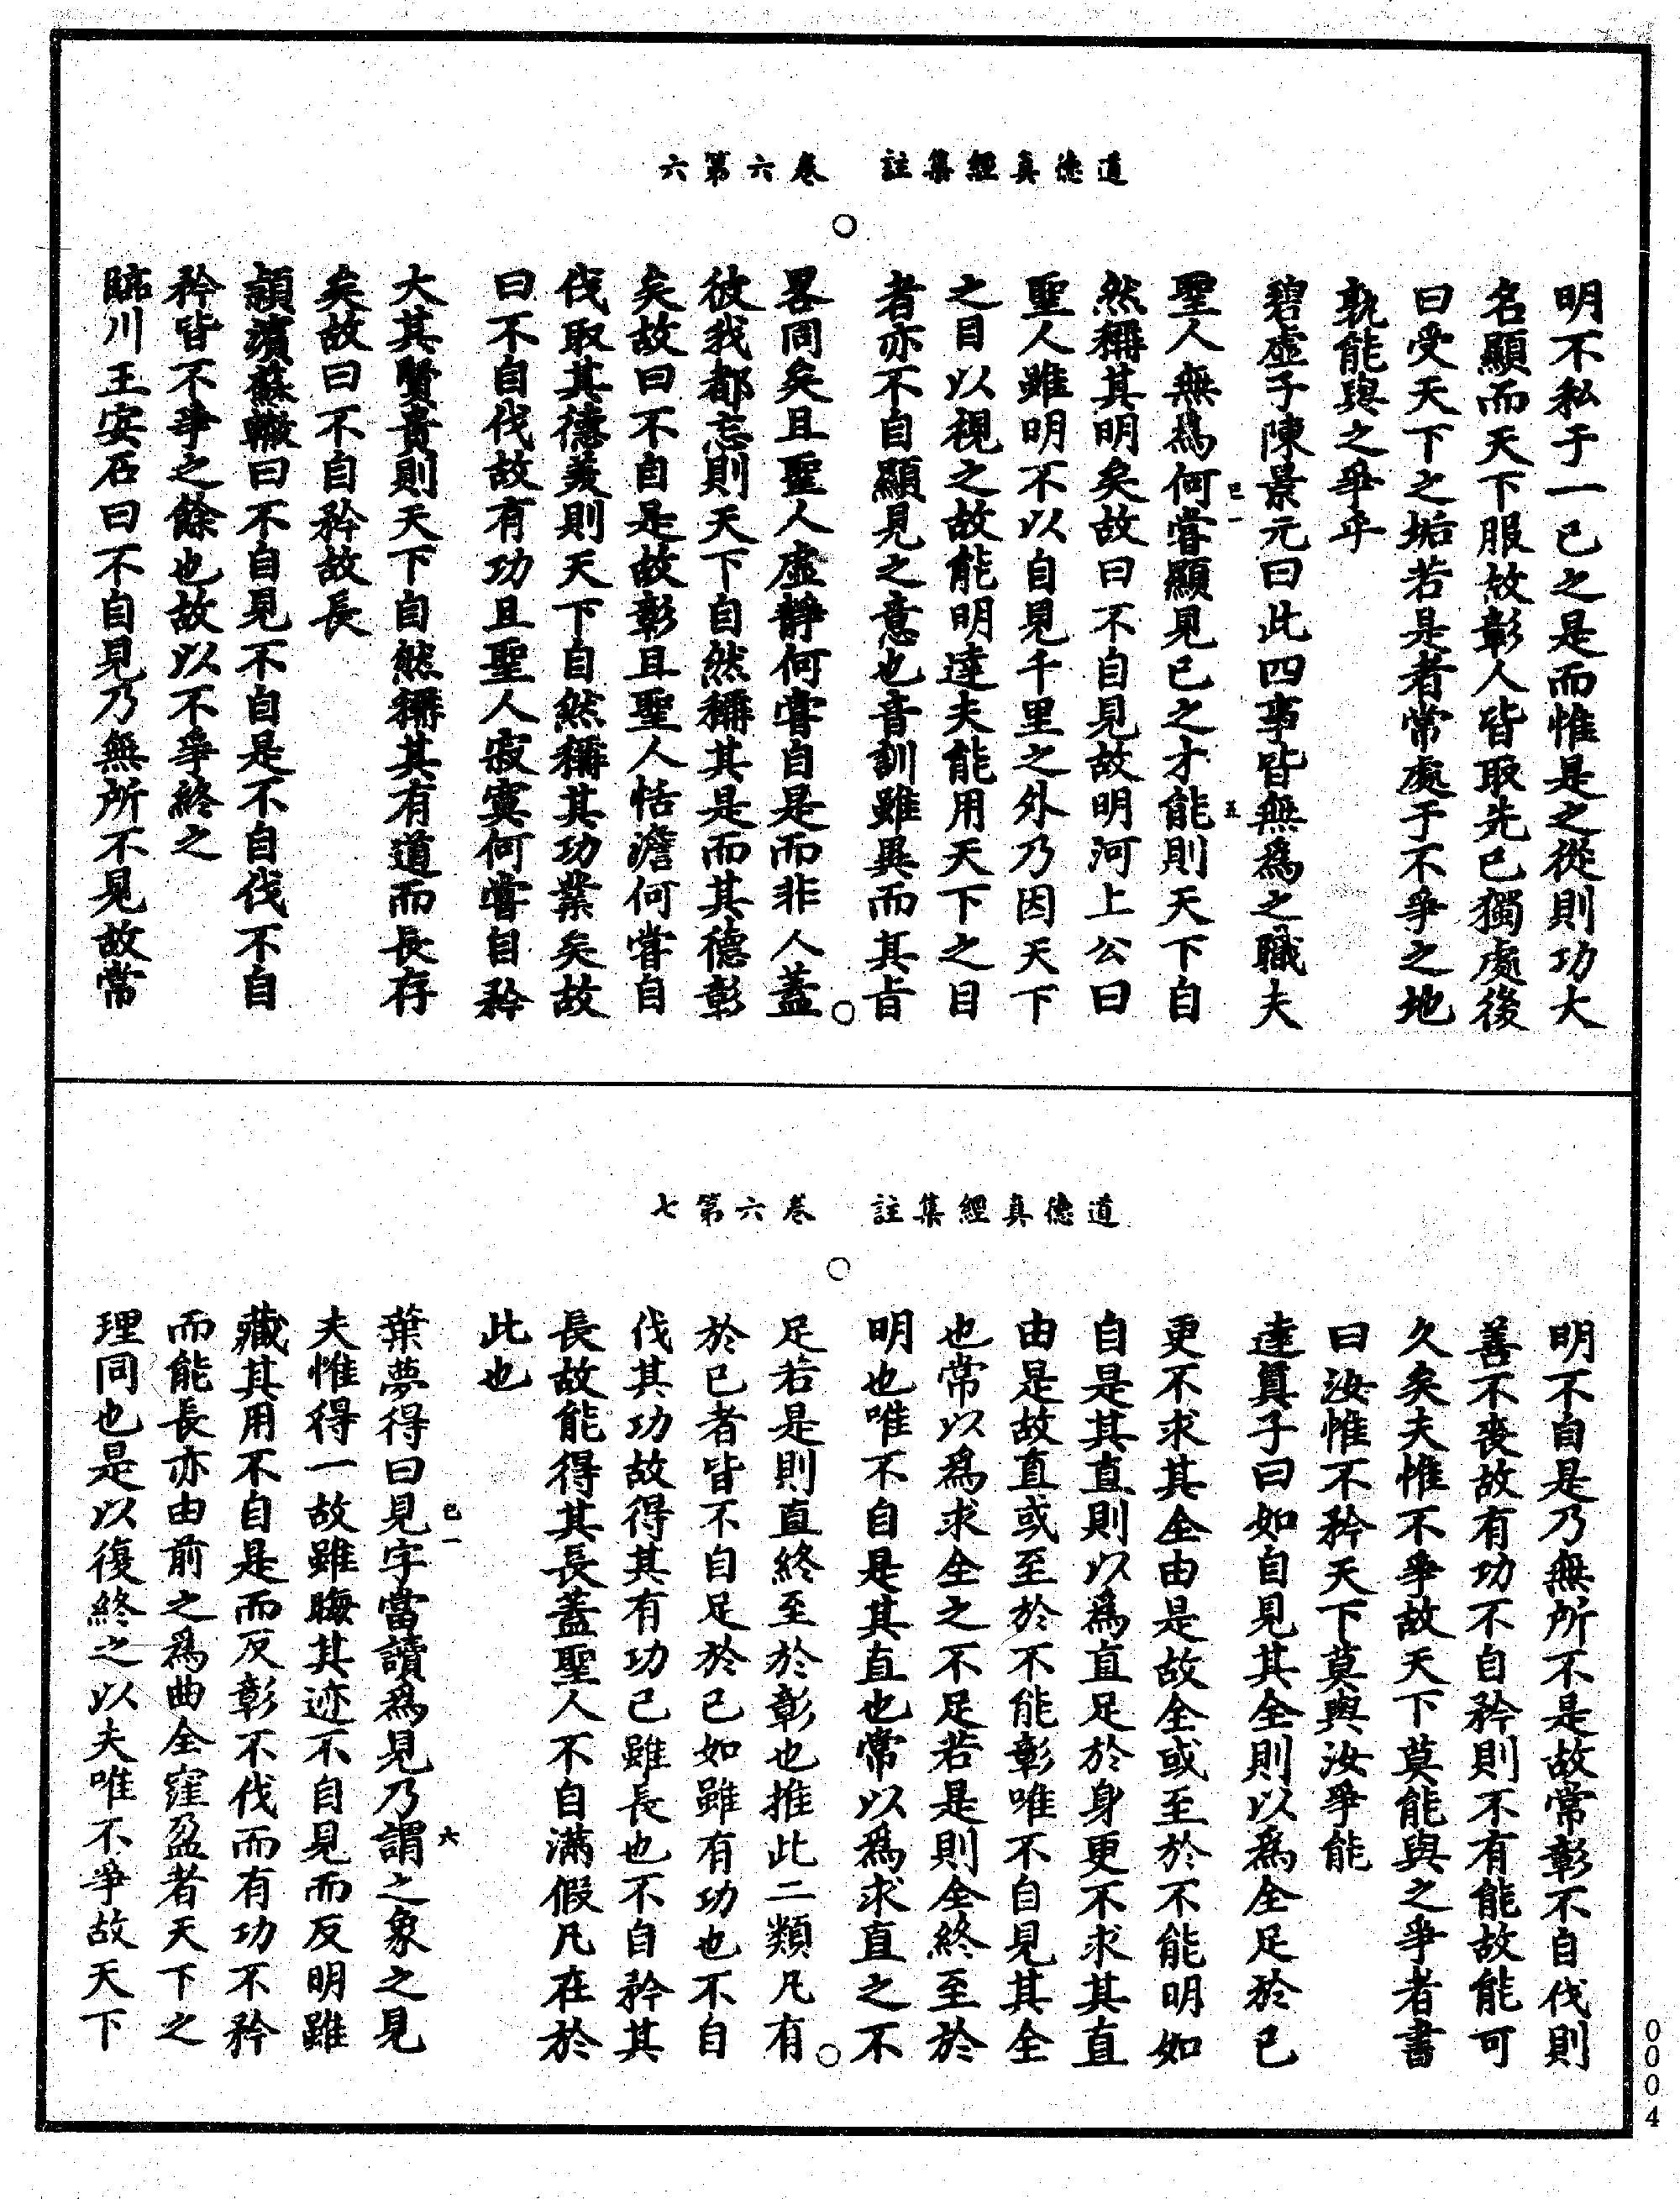 道德真經集註　卷六第六
明不私于一己之是而惟是之從則功大
名顯而天下服故彰人皆取先己獨處後
曰受天下之垢若是者常處于不爭之地
孰能與之爭乎
碧虛子陳景元曰此四事皆無為之職夫
聖人無為何嘗顯見己之才能則天下自
然稱其明矣故曰不自見故明河上公曰
聖人雖明不以自見千里之外乃因天下
之目以視之故能明達夫能用天下之目
者亦不自顯見之意也音訓雖異而其旨
畧同矣且聖人虛靜何嘗自是而非人蓋
彼我都忘則天下自然稱其是而其德彰
矣故曰不自是故彰且聖人恬澹何嘗自
伐取其德美則天下自然稱其功業矣故
曰不自伐故有功且聖人寂寞何嘗自矜
大其賢貴則天下自然稱其有道而長存
矣故曰不自矜故長
潁濱蘇轍曰不自見不自是不自伐不自
矜皆不爭之餘也故以不爭終之
臨川王安石曰不自見乃無所不見故常
巳一
五
道德真經集註　卷六第七
明不自是乃無所不是故常彰不自伐則
善不喪故有功不自矜則不有能故能可
久矣夫惟不爭故天下莫能與之爭者書
曰汝惟不矜天下莫與汝爭能
達真子曰如自見其全則以為全足於己
更不求其全由是故全或至於不能明如
自是其直則以為直足於身更不求其直
由是故直或至於不能彰唯不自見其全
也常以為求全之不足若是則全終至於
明也唯不自是其直也常以為求直之不
足若是則直終至於彰也推此二類凡有
於己者皆不自足於己如雖有功也不自
伐其功故得其有功己雖長也不自矜其
長故能得其長蓋聖人不自滿假凡在於
此也
葉夢得曰見字當讀為見乃謂之象之見
夫惟得一故雖晦其迹不自見而反明雖
藏其用不自是而反彰不伐而有功不矜
而能長亦由前之為曲全窪盈者天下之
理同也是以復終之以夫唯不爭故天下
巳一
六
0004